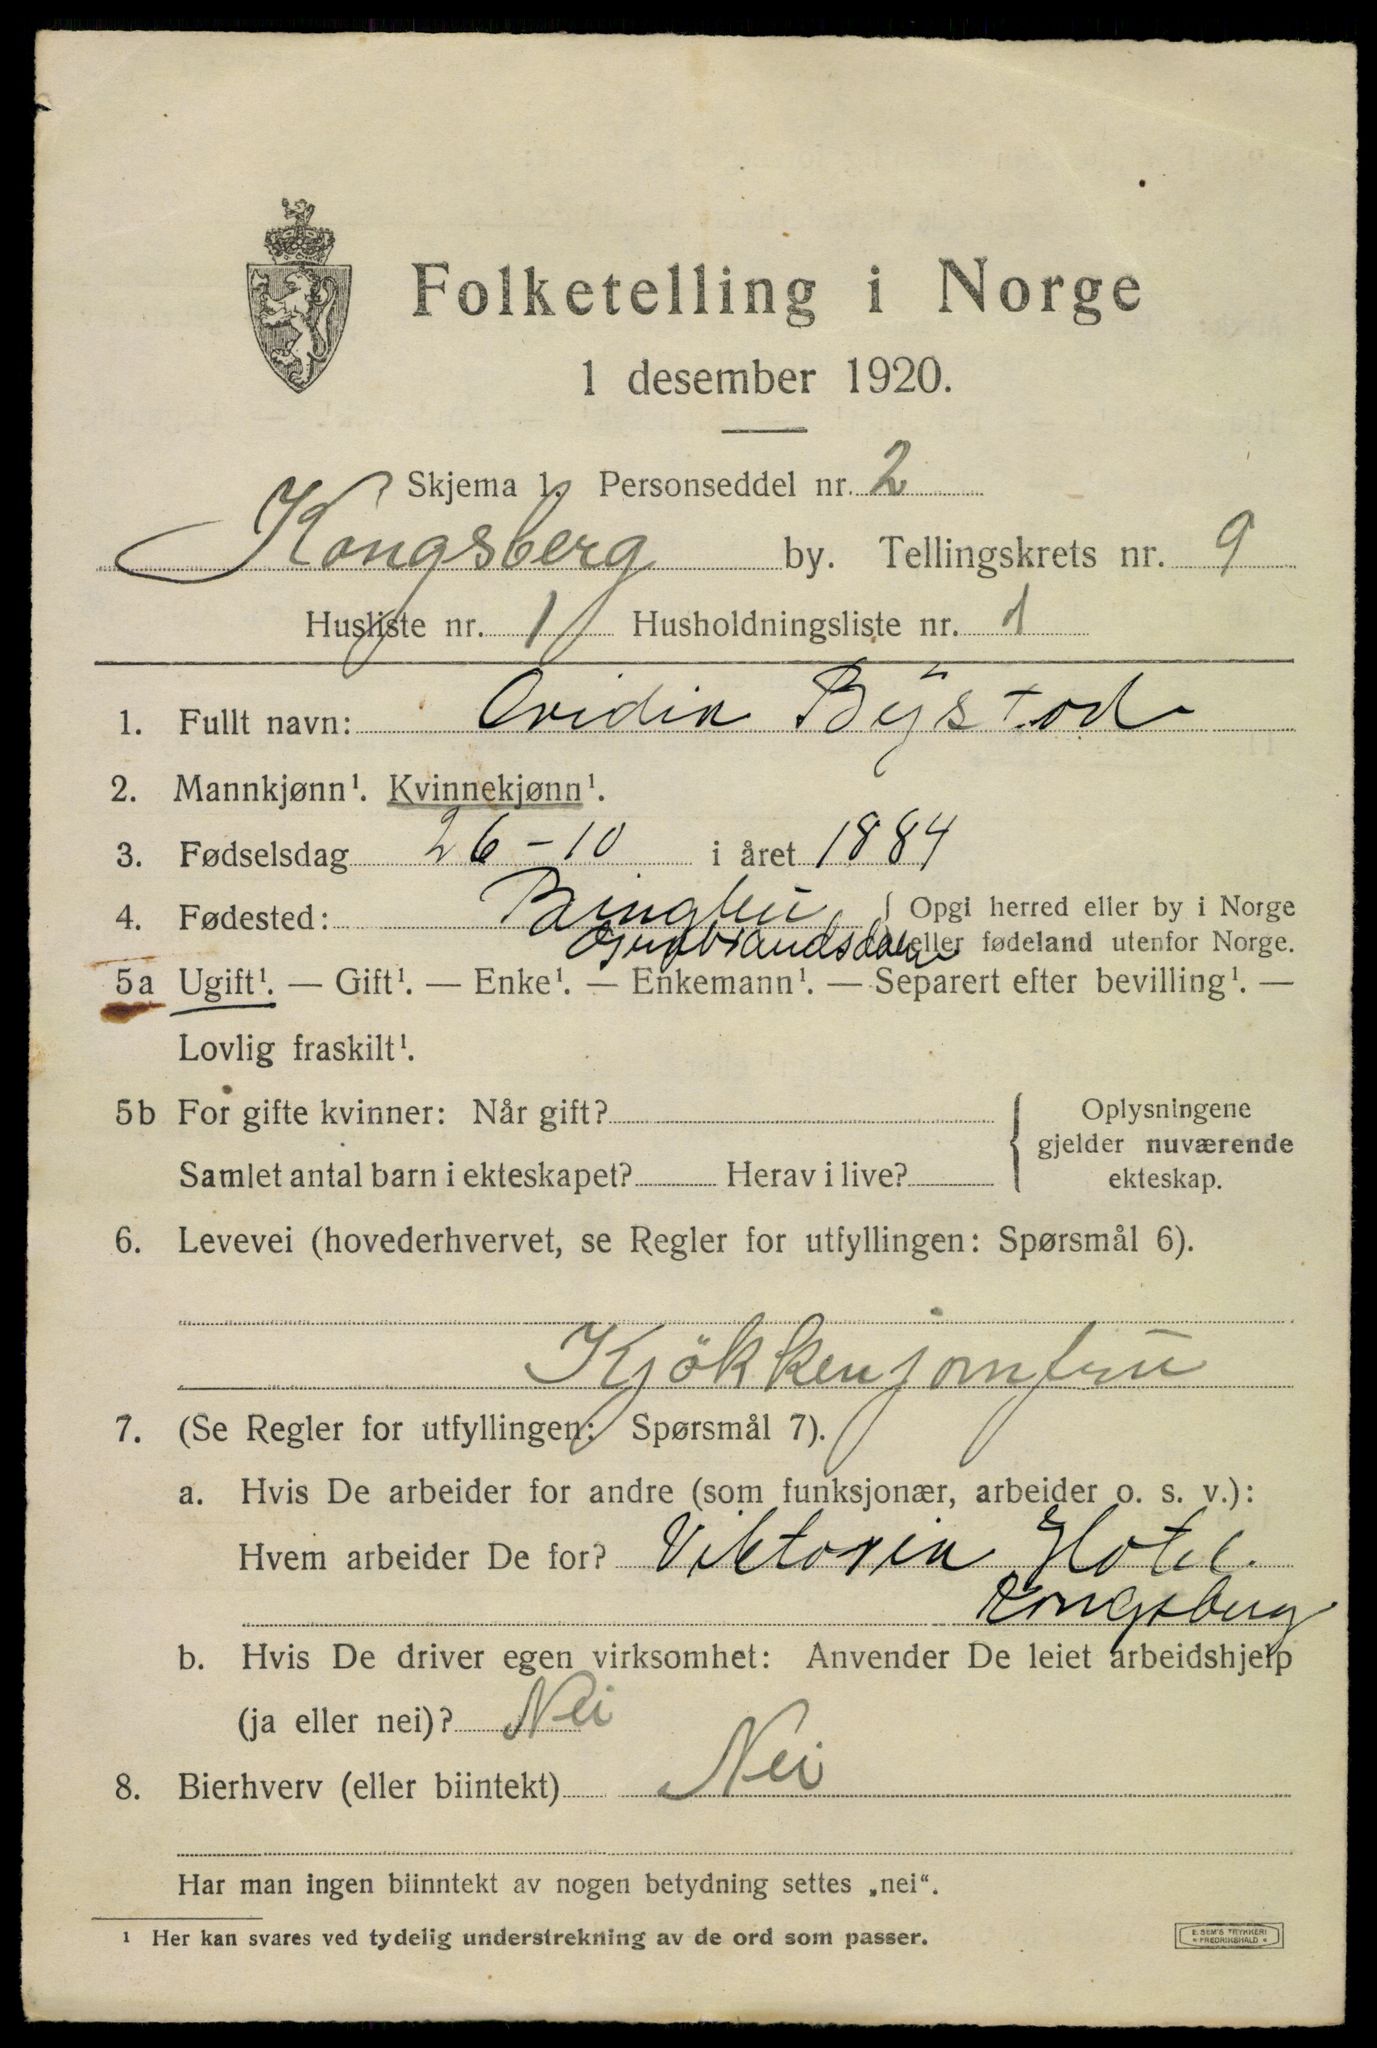 Folketelling i Norge
1 desember 1920.
Skjema 1. Personseddel nr. 2
Kongsberg by. Tellingskrets nr. 9
Husliste nr. 1 Husholdningsliste nr. 1
1. Fullt navn: Ovidia Bÿstöd
2. Mannkjønn¹. Kvinnekjønn¹.
3. Fødselsdag 26-10 i året 1884
4. Fødested: Ringbu { Opgi herred eller by i Norge
Gudbrandsdalen eller fødeland utenfor Norge.
5a Ugift¹. — Gift¹. — Enke¹. — Enkemann¹. — Separert efter bevilling¹. —
Lovlig fraskilt¹.
5b For gifte kvinner: Når gift? { Oplysningene
gjelder nuværende
Samlet antal barn i ekteskapet? Herav i live? ekteskap.
6. Levevei (hovederhvervet, se Regler for utfyllingen: Spørsmål 6).
Kjökkenjomfru
7. (Se Regler for utfyllingen: Spørsmål 7).
a. Hvis De arbeider for andre (som funksjonær, arbeider o. s. v.):
Hvem arbeider De for? Viktoria Hotel.
Kongsberg
b. Hvis De driver egen virksomhet: Anvender De leiet arbeidshjelp
(ja eller nei)? Nei
8. Bierhverv (eller biintekt) Nei
Har man ingen biinntekt av nogen betydning settes „nei“.
¹ Her kan svares ved tydelig understrekning av de ord som passer.
E. SEM'S TRYKKERI
* FREDRIKSHALD *